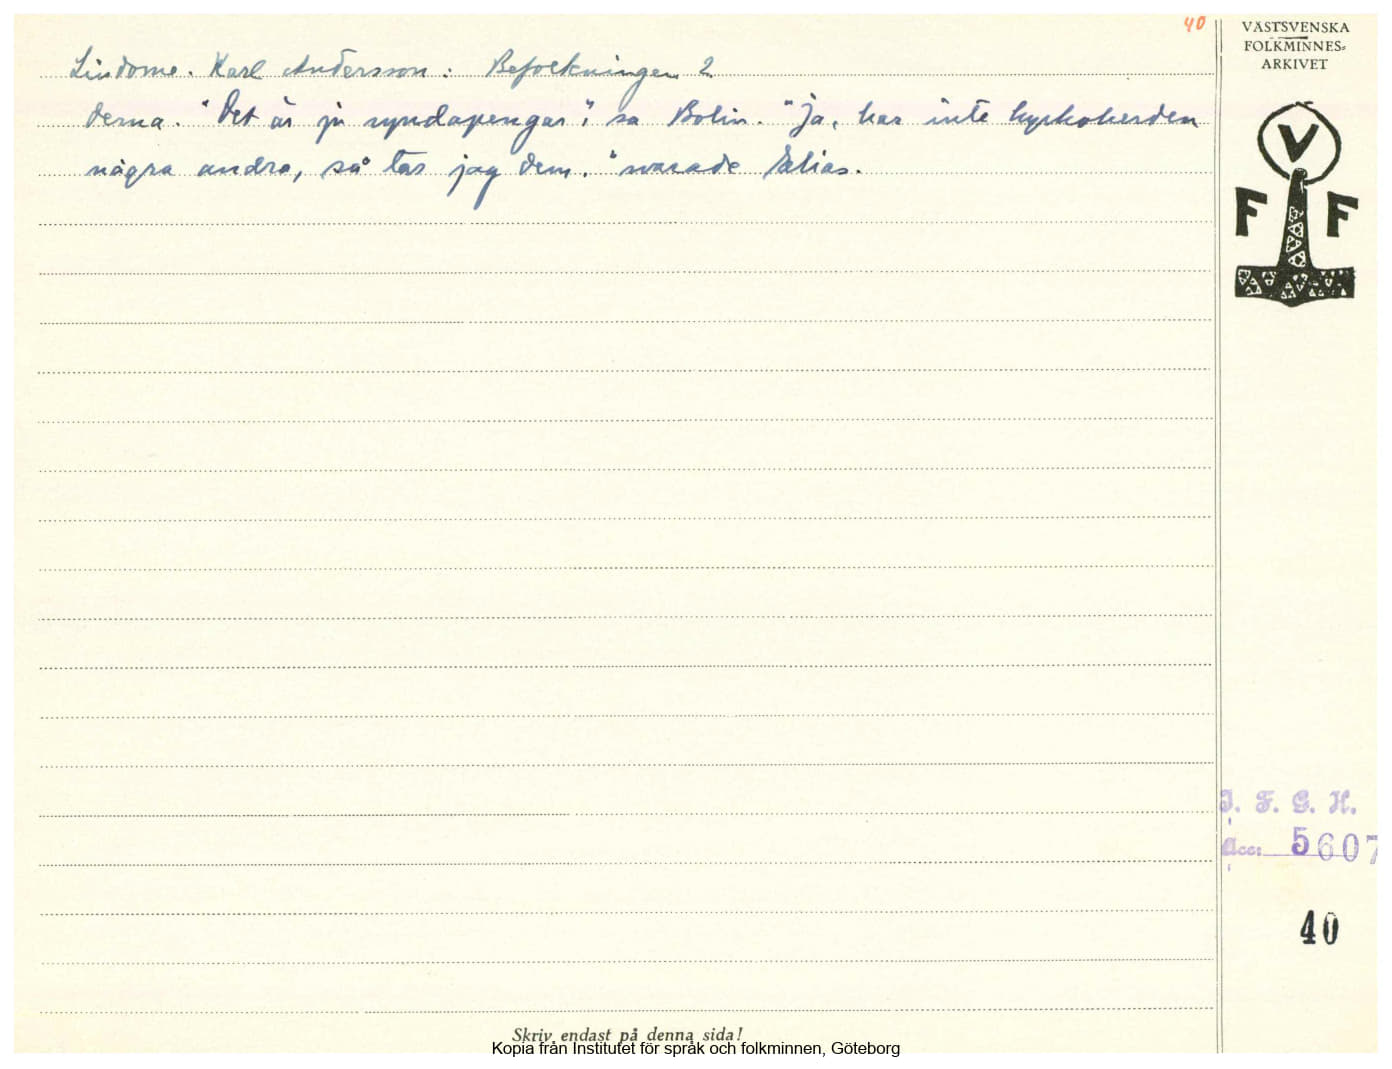 40
VÄSTSVENSKA
FOLKMINNES-
ARKIVET
Lindome. Karl Andersson: Befolkningen 2.
derna. "Det är ju syndapengar", sa Bolin. "Ja, har inte kyrkoherden
några andra, så tar jag dem." svarade Elias.
V
F F
I. F. G. H.
Acc: 5607
40
Skriv endast på denna sida!
Kopia från Institutet för språk och folkminnen, Göteborg